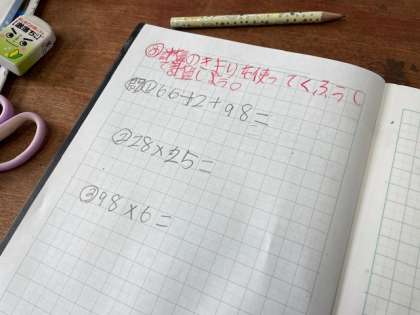 計算のきまりを使ってくふうし
て計算しよう。
①266+2+98=
②28×25=
③98×6=